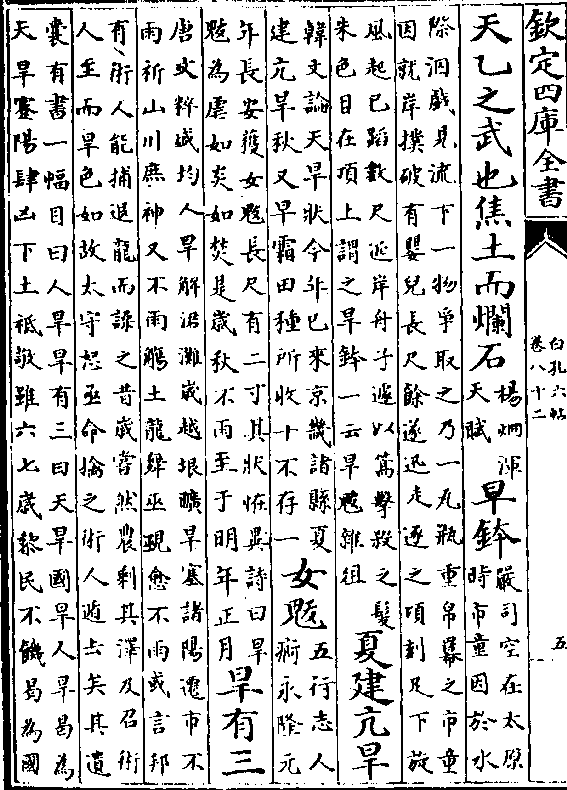 欽定四庫全書
白孔六帖
卷八十二
五
天乙之武也焦土而爛石
楊炯渾
天賦
旱鉢
嚴司空在太原
時市童因於水
際洄戲見流下一物爭取之乃一瓦瓶重帛羃之市童
因就岸撲破有嬰兒長尺餘遂迅走逐之頃刻足下旋
風起已蹈數尺近岸舟子遽以篙擊殺之髮
朱色目在項上謂之旱鉢一云旱魃雜俎
夏建亢旱
韓文論天旱狀今年已來京畿諸縣夏
建亢旱秋又早霜田種所收十不存一
女魃
五行志人
痾永隆元
年長安獲女魃長尺有二寸其狀怪異詩曰旱
魃為虐如炎如焚是歲秋不雨至于明年正月
旱有三
唐文粹戚均人旱解沿灘歲越垠曠旱塞諸陽遷市不
雨祈山川廡神又不雨觴土龍肆巫覡愈不雨或言邦
有術人能捕逗龍而誅之昔歲嘗然農剩其澤及召術
人至而旱色如故太守怒亟命擒之術人遁去矣其遺
囊有書一幅目曰人旱旱有三曰天旱國旱人旱曷為
天旱蹇陽肆凶下土祗敬雖六七歲黎民不饑曷為國